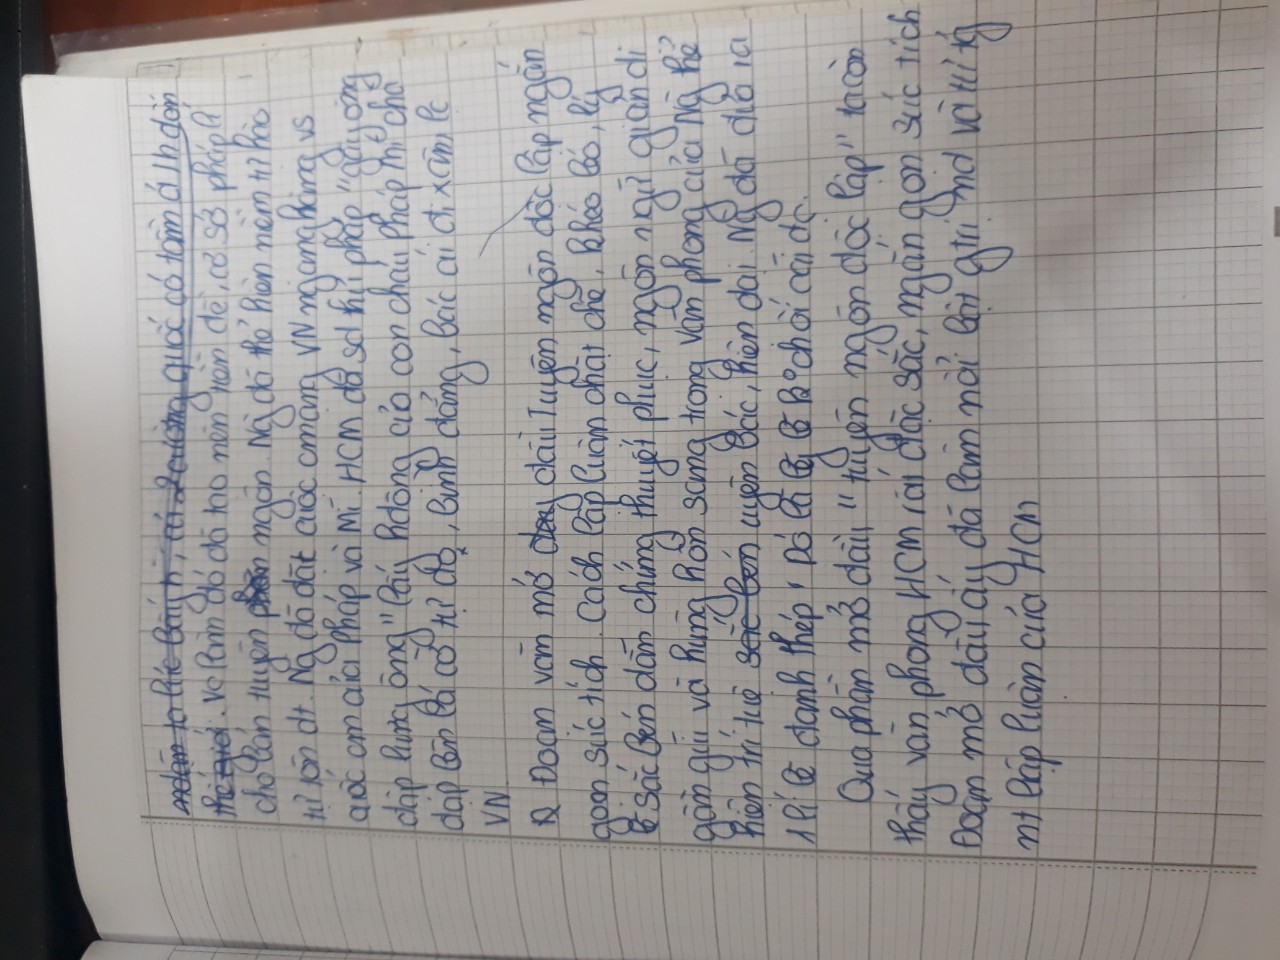 thế giới. Vc làm đó đã tạo nên nền đề, cơ sở pháp lí
cho bản tuyên ngôn. Ng đã thể hiện niềm tự hào
tự tôn dt. Ng đã đặt cuộc cmạng VN ngang hàng vs
cuộc cm của Pháp và Mĩ. HCM đã sd thủ pháp "gậy ông
đập lưng ông" lấy hđông của con cháu pháp thi cho
đáp lên lá cờ tự do, bình đẳng, bác ái đi xâm lc
VN
Đoạn văn mở đầu Tuyên ngôn độc lập ngắn
gọn súc tích. Cách lập luận chặt chẽ, khéo léo, lí
lẽ sắc bén dẫn chứng thuyết phục, ngôn ngữ giản dị
gần gũi và hùng hồn song trong văn phong của Ng thể
hiện trí tuệ sắc bén uyên bác, hiện đại. Ng đã đưa ra
1 lí lẽ đanh thép " Đó là lẽ k° chối cãi đc.
Qua phần mở đầu "tuyên ngôn độc lập" ta còn
thấy văn phong HCM rất đặc sắc, ngắn gọn súc tích
Đoạn mở đầu ấy đã làm nổi bật gtrị nd và tư tg
nt lập luận của HCM